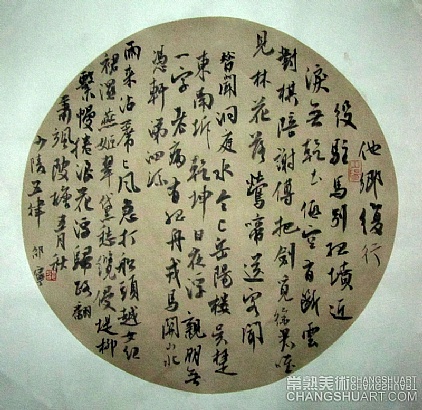 他鄉復行
役駐馬別孤墳近
淚無乾土低空有斷雲
對棋陪謝傅把劍覓徐君唯
見林花落鶯啼送客聞
昔聞洞庭水今上岳陽樓吳楚
東南坼乾坤日夜浮親朋無
一字老病有孤舟戎馬關山北
憑軒涕泗流
雨來沾席上風急打船頭越女紅
裙濕燕姬翠黛愁纜侵堤柳
繫幔捲浪花浮歸路翻
蕭颯陂塘五月秋
少陵五律
常熟美術CHANGSHUART
CHANGSHUART.COM